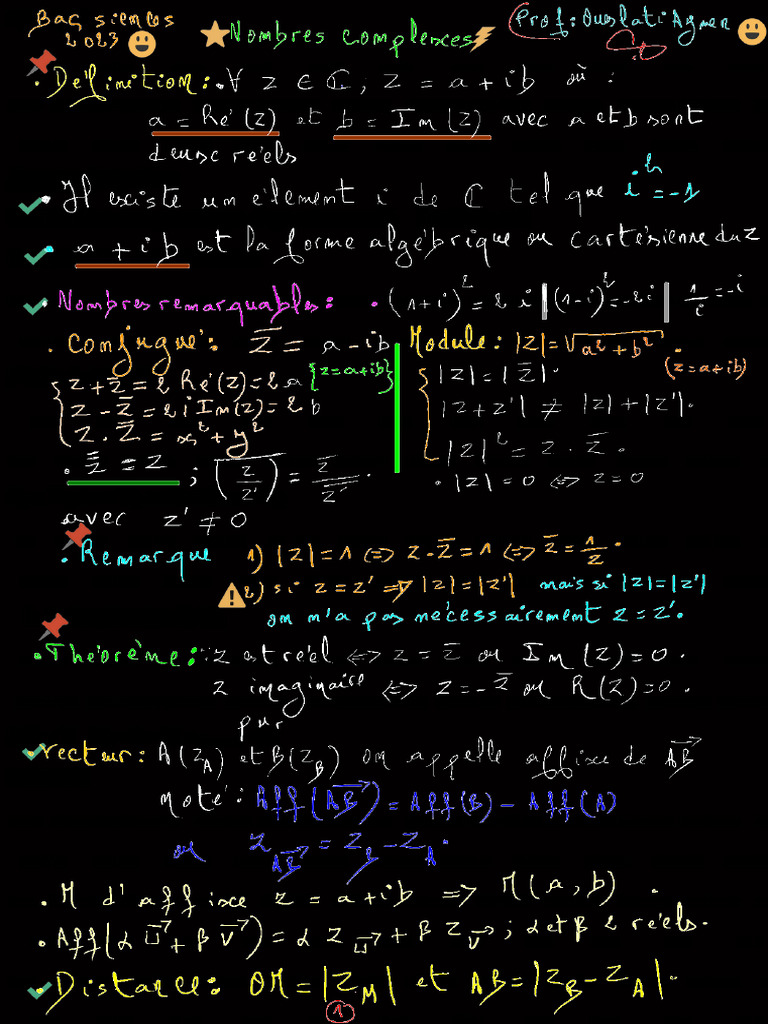 Bac siences 2023
Nombres complexes
Prof: Oueslati Aymen
• Définition: ∀ z ∈ ℂ, z = a + ib où :
a = Ré(z) et b = Im(z) avec a et b sont
deux réels
• Il existe un élement i de ℂ tel que i² = -1
• a + ib est la forme algébrique ou cartésienne du z
• Nombres remarquables: • (1+i)² = 2i | (1-i)² = -2i | 1/i = -i
• Conjugué: z̅ = a - ib
{z = a+ib}
z + z̅ = 2 Ré(z) = 2a
z - z̅ = 2i Im(z) = 2 b
z . z̅ = x² + y²
• z̿ = z ; \overline{(z/z')} = z̅/z̅' .
avec z' ≠ 0
Module: |z| = √(a² + b²) .
(z = a+ib)
|z| = |z̅| .
|z + z'| ≠ |z| + |z'| .
|z|² = z . z̅ .
• |z| = 0 ⇔ z = 0
• Remarque 1) |z| = 1 ⇔ z . z̅ = 1 ⇔ z̅ = 1/z .
2) si z = z' ⇒ |z| = |z'| mais si |z| = |z'|
on n'a pas nécessairement z = z'.
• Théorème: z est réel ⇔ z = z̅ ou Im(z) = 0 .
z imaginaire ⇔ z = - z̅ ou R(z) = 0 .
pur
• vecteur: A(z_A) et B(z_B) on appelle affixe de AB⃗
noté: Aff(AB⃗) = Aff(B) - Aff(A)
ou z_AB⃗ = z_B - z_A .
• M d'affixe z = a + ib ⇒ M(a, b) .
• Aff(α U⃗ + β V⃗) = α z_U⃗ + β z_V⃗ ; α et β 2 réels .
• Distance: OM = |z_M| et AB = |z_B - z_A| .
1